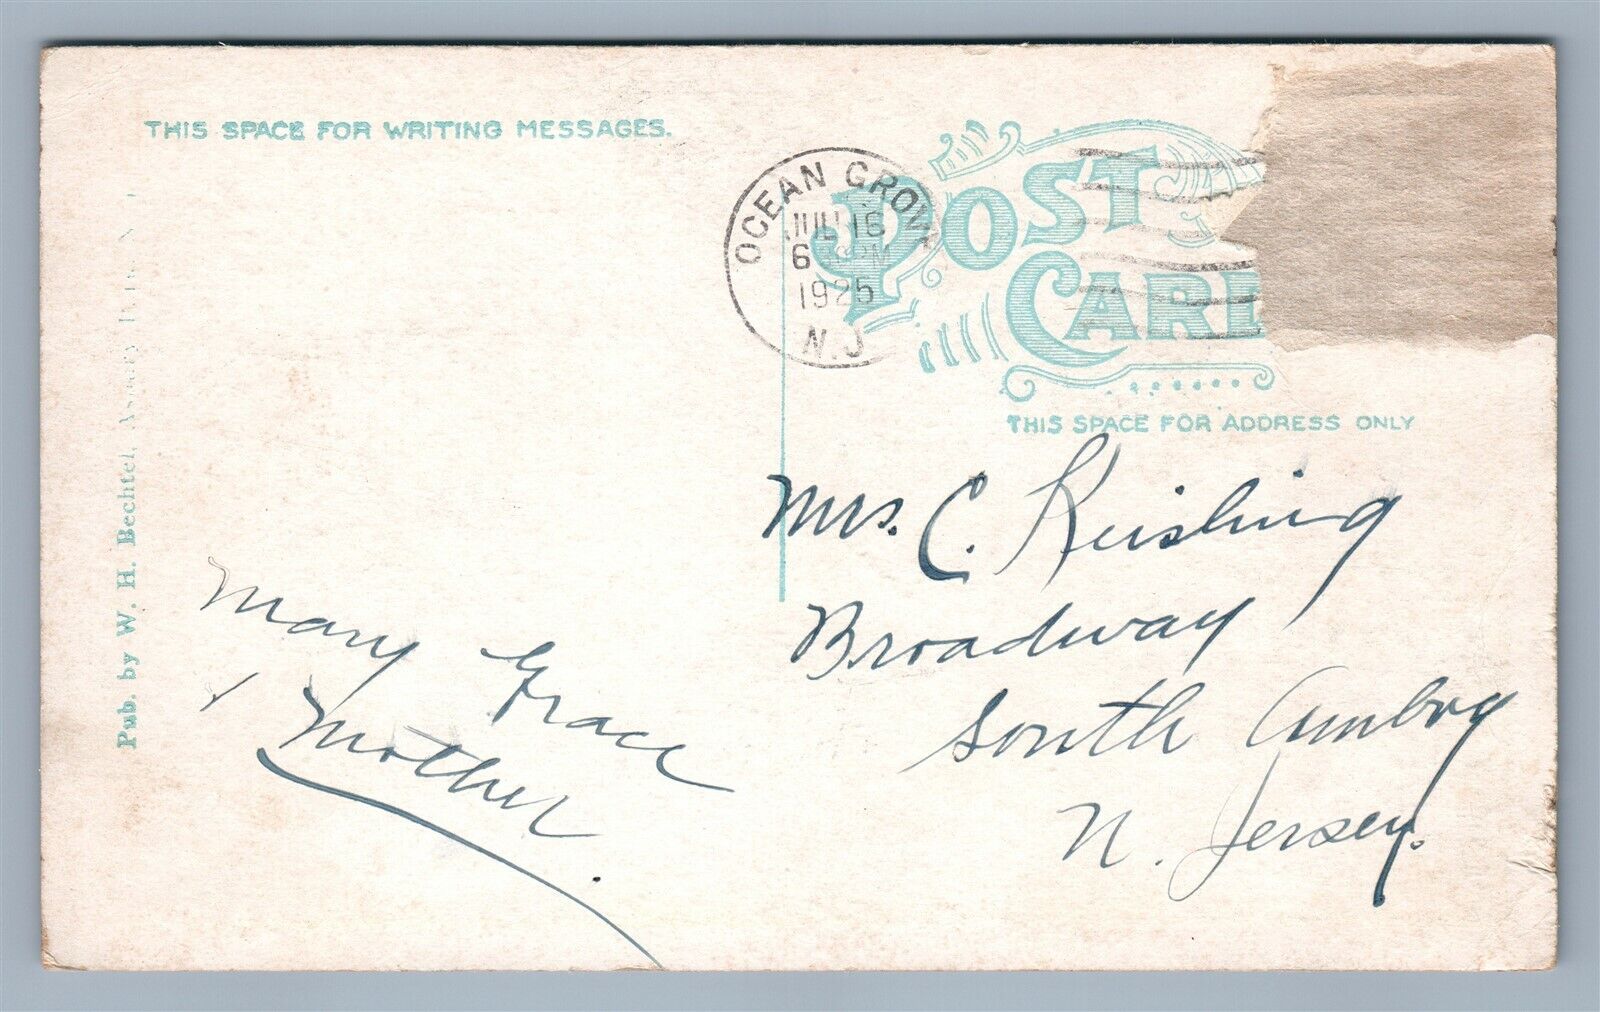 THIS SPACE FOR WRITING MESSAGES.
POST CARD
OCEAN GROVE
JUL 16
6 PM
1925
N.J.
THIS SPACE FOR ADDRESS ONLY
Mrs. C. Keisling
Broadway
South Amboy
N. Jersey.
Mary Grace
& Mother.
Pub. by W. H. Bechtel, Asbury Park, N. J.